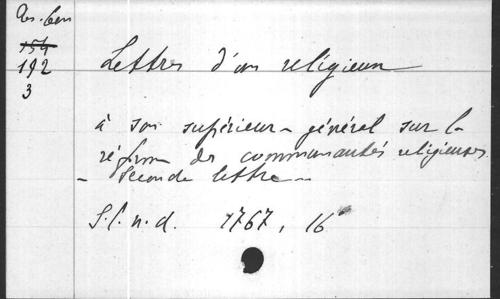 154
192
3
Lettres d'un religieux
à son supérieur général sur la
réforme des communautés religieuses.
- Seconde lettre -
S.l.n.d. 1767, 16°